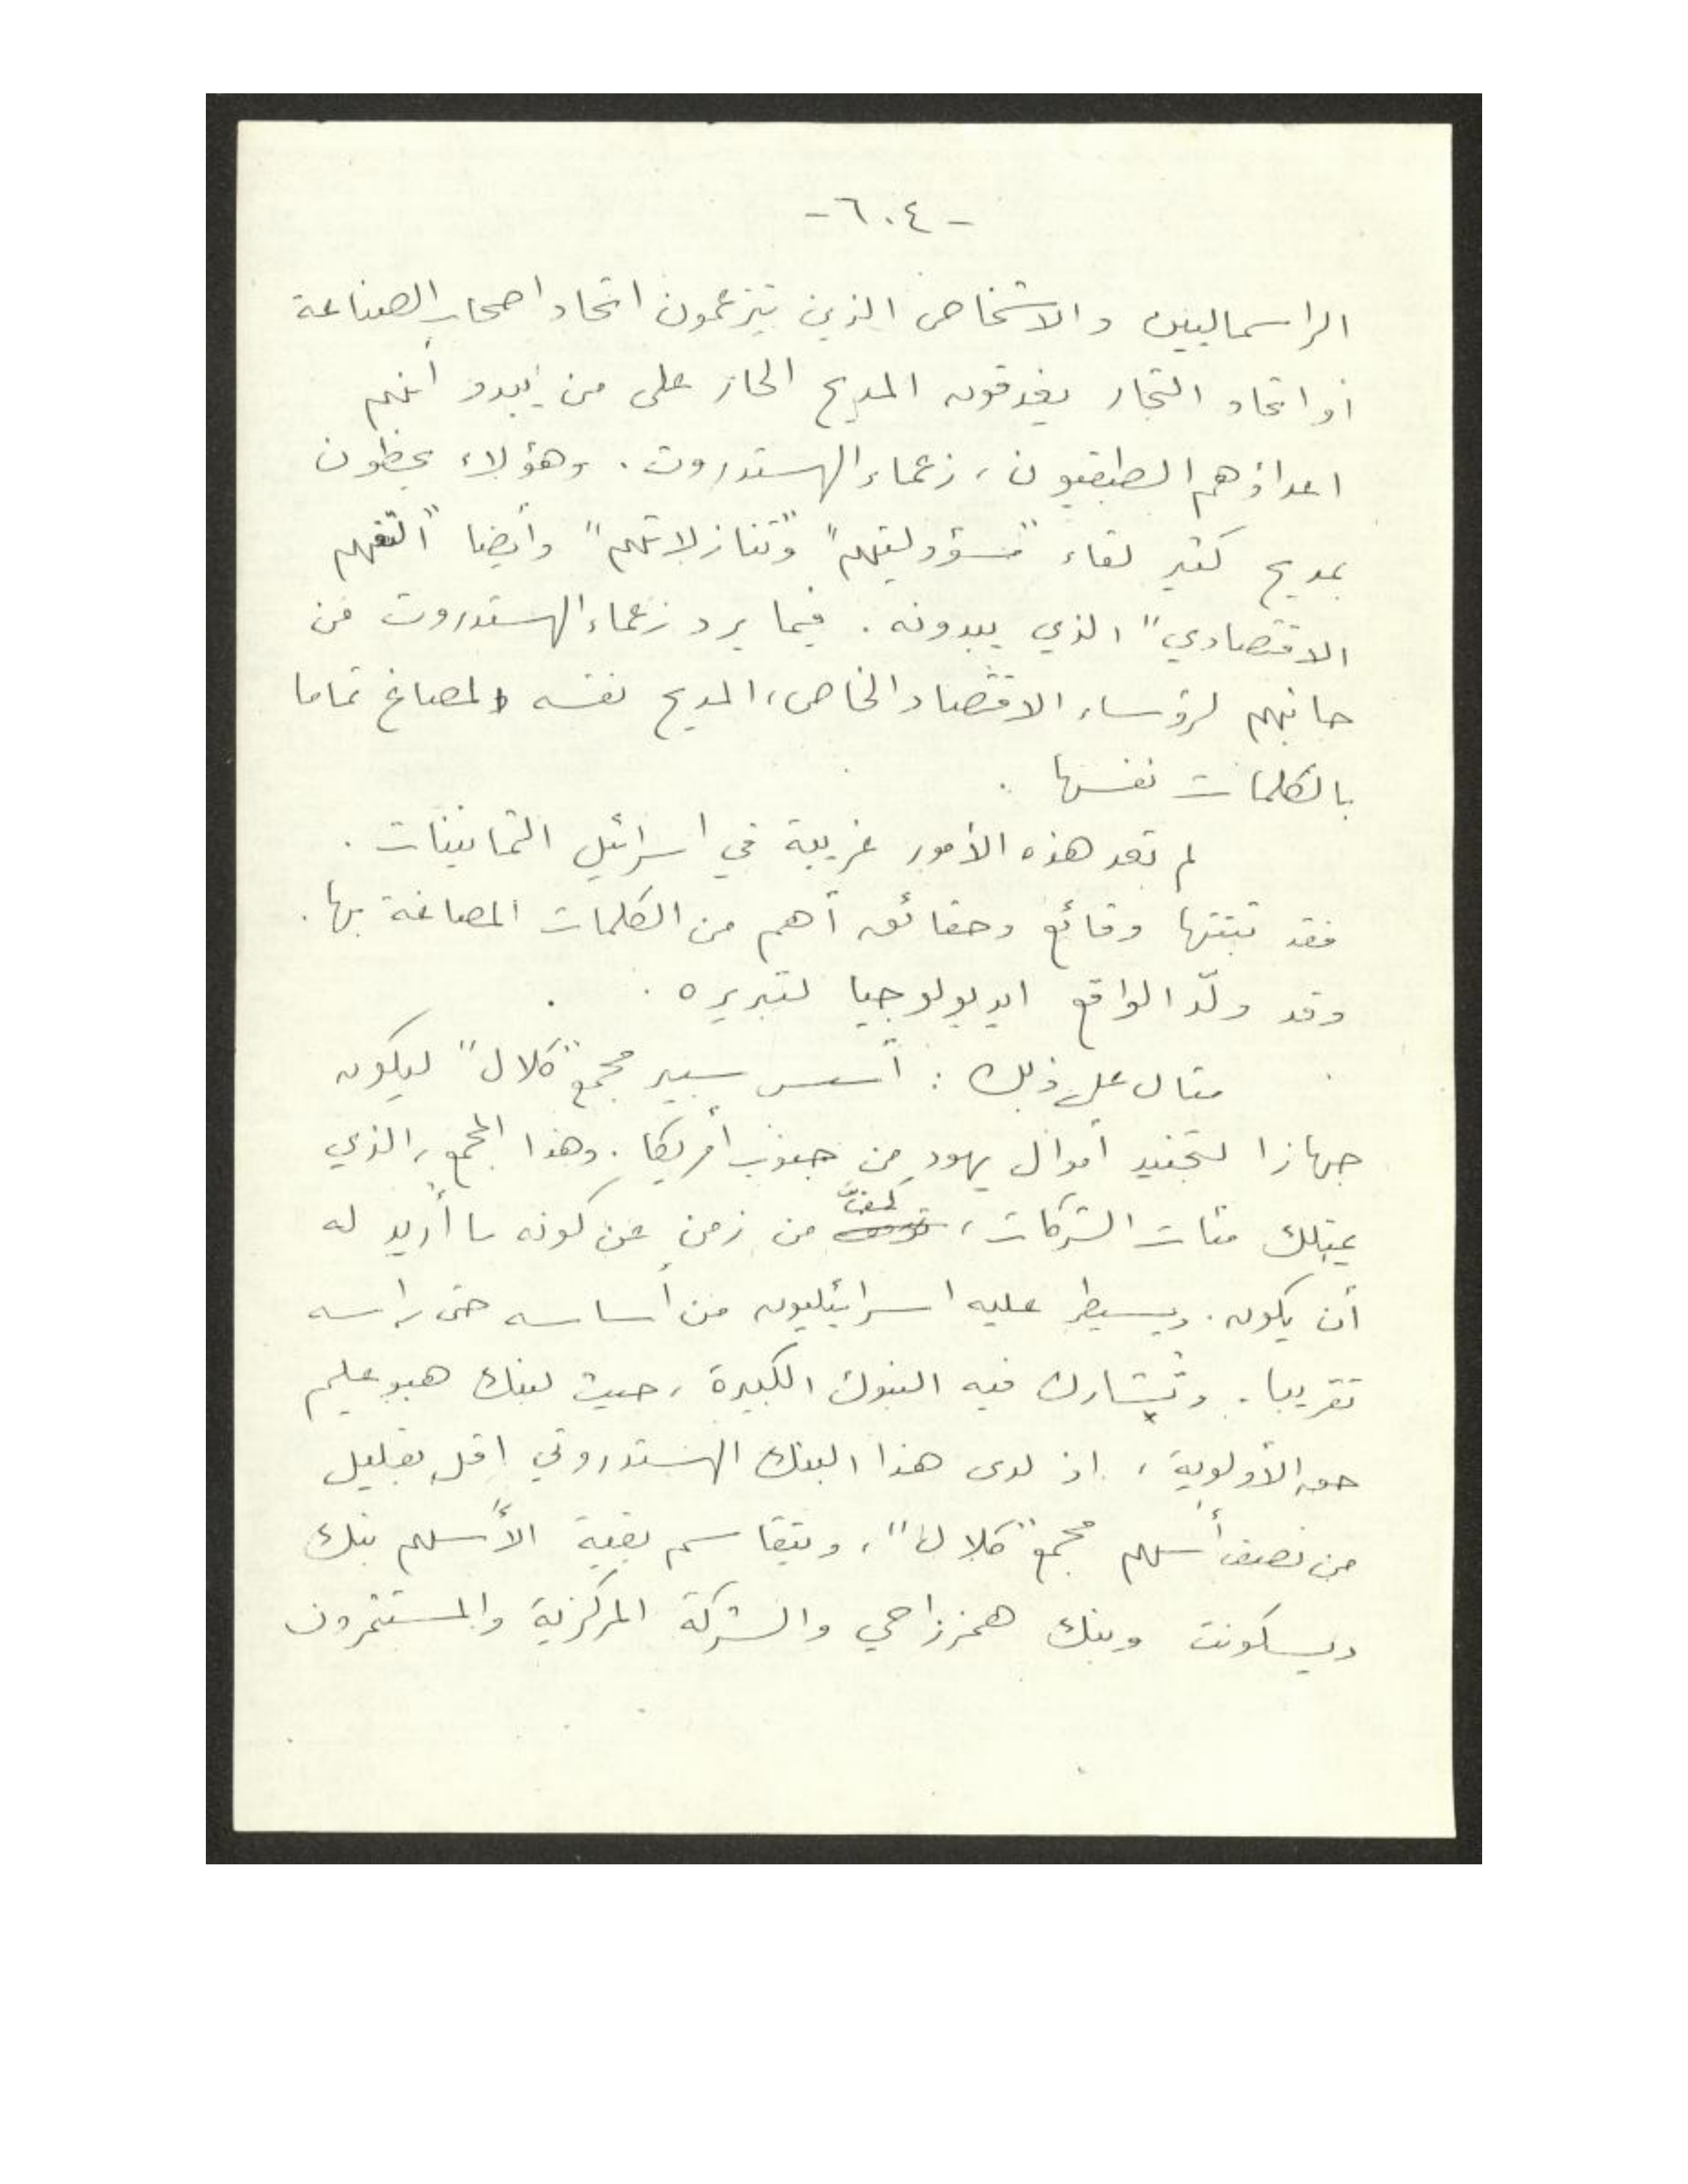 - ٦٠٤ -
الراسماليين والاشخاص الذين يتزعمون اتحاد اصحاب الصناعة
أو اتحاد التجار يغدقون المديح الحار على من يبدو أنهم
اعداؤهم الطبقيون، زعماء الهستدروت. وهؤلاء يحظون
بمديح كثير لقاء "مسؤوليتهم" و"تنازلاتهم" وأيضا "التفهم
الاقتصادي" الذي يبدونه. فيما يرد زعماء الهستدروت من
جانبهم لرؤساء الاقتصاد الخاص، المديح نفسه المصاغ تماما
بالكلمات نفسها.
لم تعد هذه الأمور غريبة في اسرائيل الثمانينات.
فقد ثبتتها وقائع وحقائق أهم من الكلمات المصاغة بها.
وقد ولّد الواقع ايديولوجيا لتبريره.
مثال على ذلك: أسس سبير مجمع "كلال" ليكون
جهازا لتجنيد أموال يهود من جنوب أمريكا. وهذا المجمع، الذي
يمتلك مئات الشركات، كفّ من زمن عن كونه ما أريد له
أن يكون. ويسيطر عليه اسرائيليون من أساسه حتى راسه
تقريبا. وتشارك فيه البنوك الكبيرة، حيث لبنك هبوعليم
حق الأولوية، اذ لدى هذا البنك الهستدروتي اقل بقليل
من نصف أسهم مجمع "كلال"، ويتقاسم بقية الأسهم بنك
ديسكونت وبنك همزراحي والشركة المركزية والمستثمرون